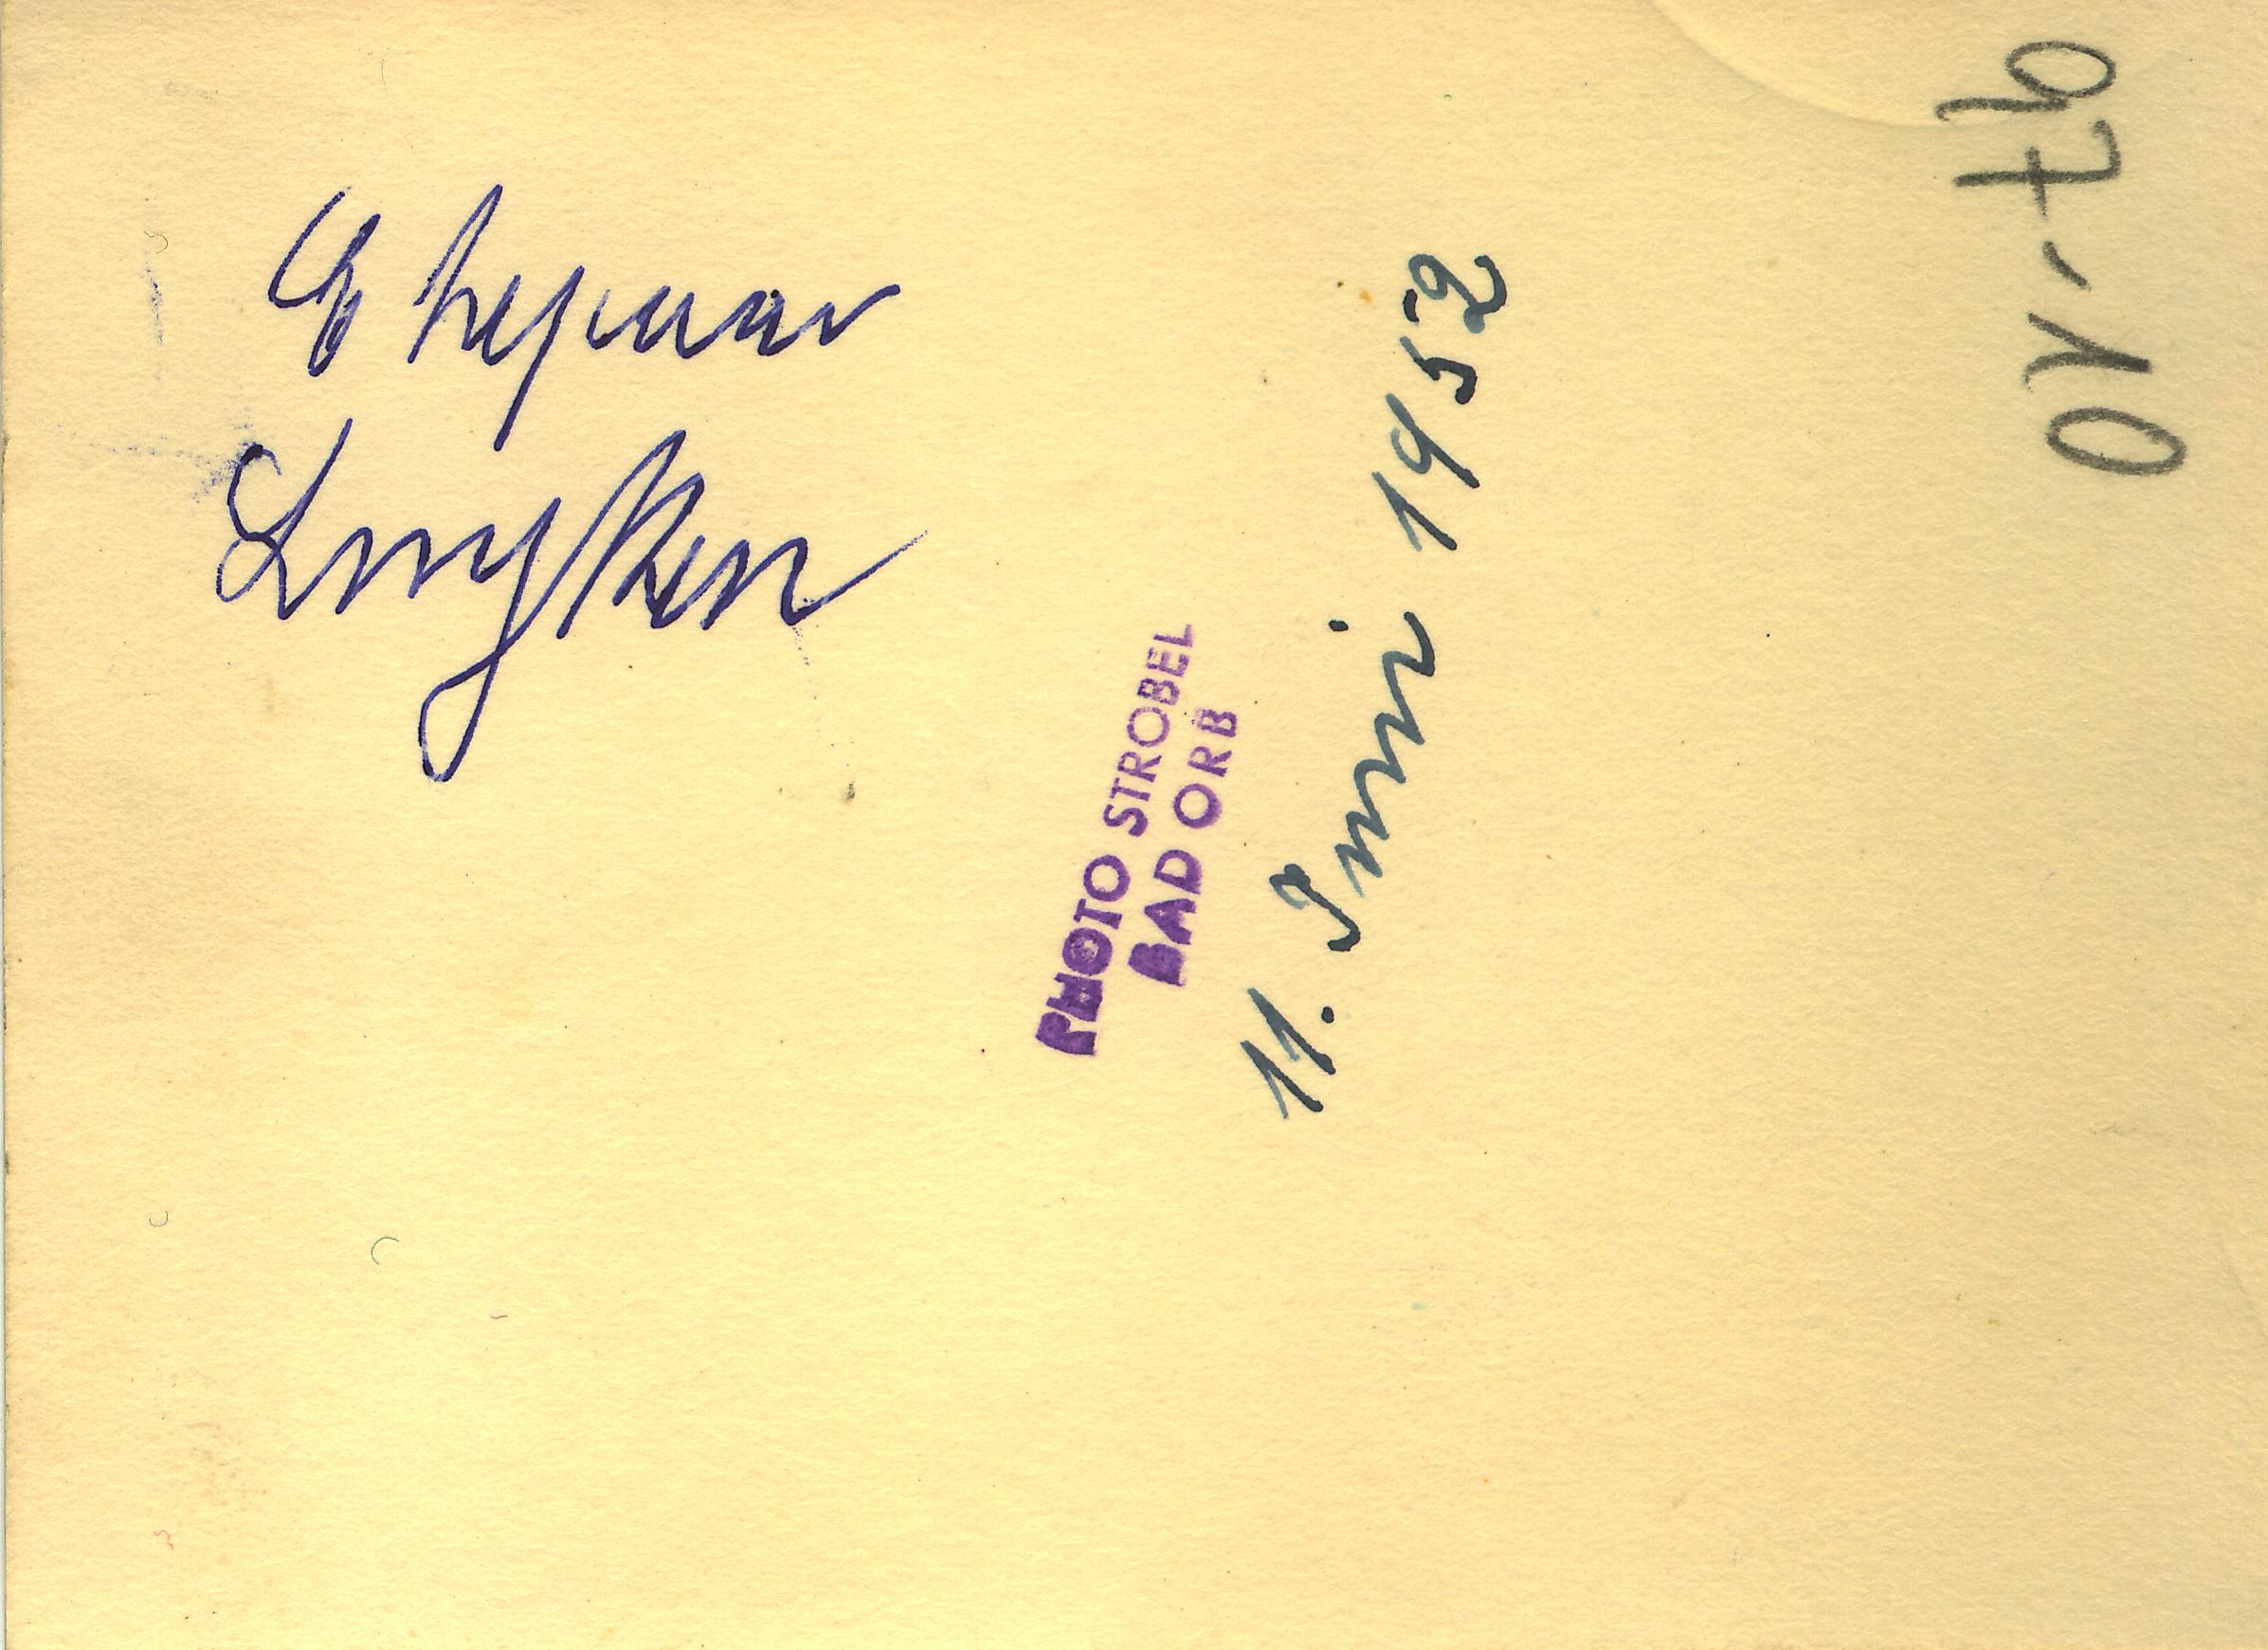 Ehepaar
Luyken
PHOTO STROBEL
BAD ORB
11. Juni 1952
97-10